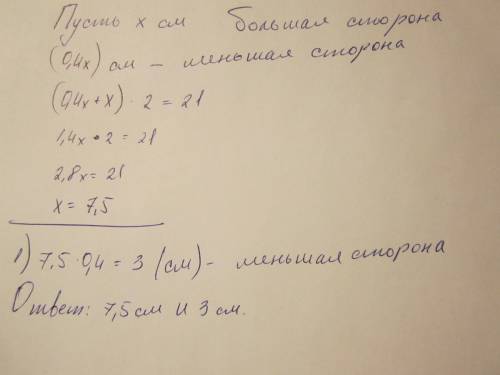 Пусть x см большая сторона
(0,4x) см – меньшая сторона
(0,4x + x) · 2 = 21
1,4x · 2 = 21
2,8x = 21
x = 7,5
1) 7,5 · 0,4 = 3 (см) – меньшая сторона
Ответ: 7,5 см и 3 см.